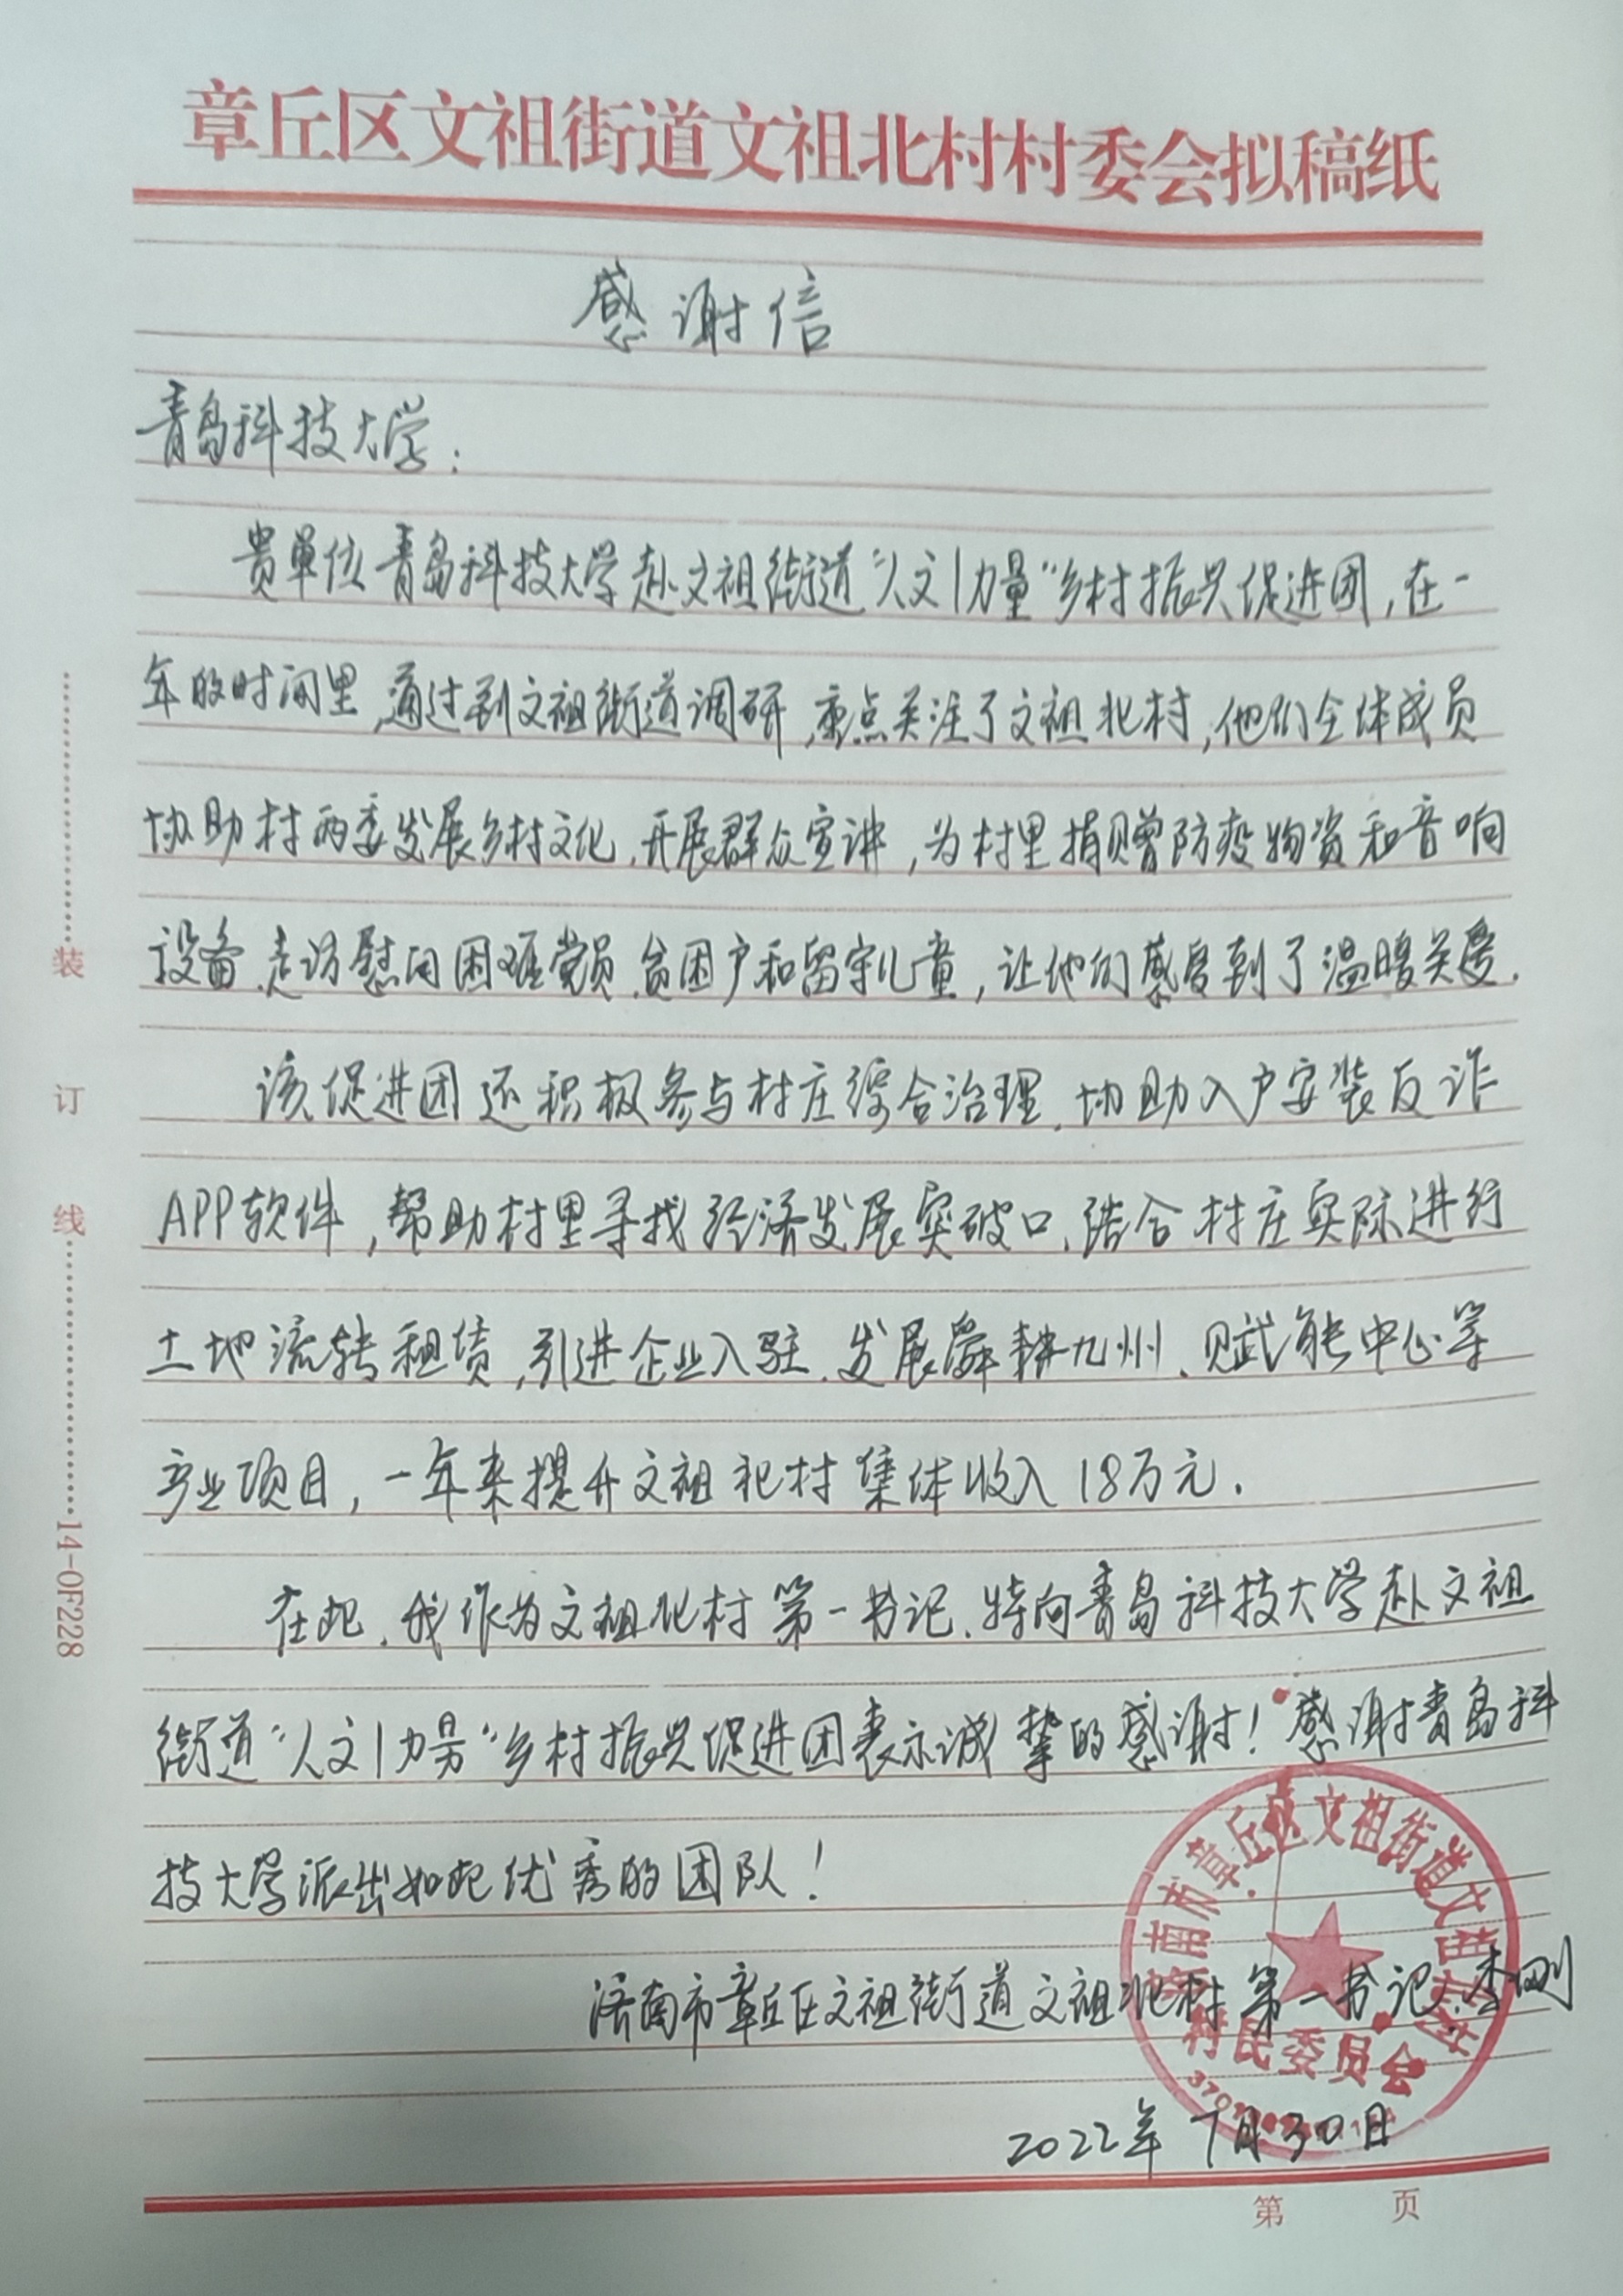 章丘区文祖街道文祖北村村委会拟稿纸
感谢信
青岛科技大学：
贵单位青岛科技大学赴文祖街道“人文\力量”乡村振兴促进团，在一
年的时间里，通过到文祖街道调研，重点关注了文祖北村，他们全体成员
协助村两委发展乡村文化，开展群众宣讲，为村里捐赠防疫物资和音响
设备，走访慰问困难党员、贫困户和留守儿童，让他们感受到了温暖关爱。
该促进团还积极参与村庄综合治理，协助入户安装反诈
APP软件，帮助村里寻找经济发展突破口，结合村庄实际进行
土地流转租赁，引进企业入驻，发展舜耕九州、赋能中心等
产业项目，一年来提升文祖北村集体收入18万元。
在此，我作为文祖北村第一书记，特向青岛科技大学赴文祖
街道“人文\力量”乡村振兴促进团表示诚挚的感谢！感谢青岛科
技大学派出如此优秀的团队！
济南市章丘区文祖街道文祖北村第一书记：李刚
2022年7月30日
济南市章丘区文祖街道文祖北村
村民委员会
装
订
线
14-0F228
第 页